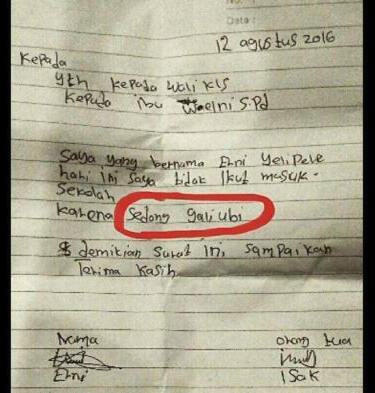 Date :
12 agustus 2016
Kepada
Yth kepada wali kls
Kepada ibu Welni S.Pd
Saya yang bernama Erni Yelipele
hari ini saya tidak ikut masuk
Sekolah
karena Sedang gali ubi
demikian surat ini, sampaikan
Terima kasih
Nama
orang tua
Erni
Isak